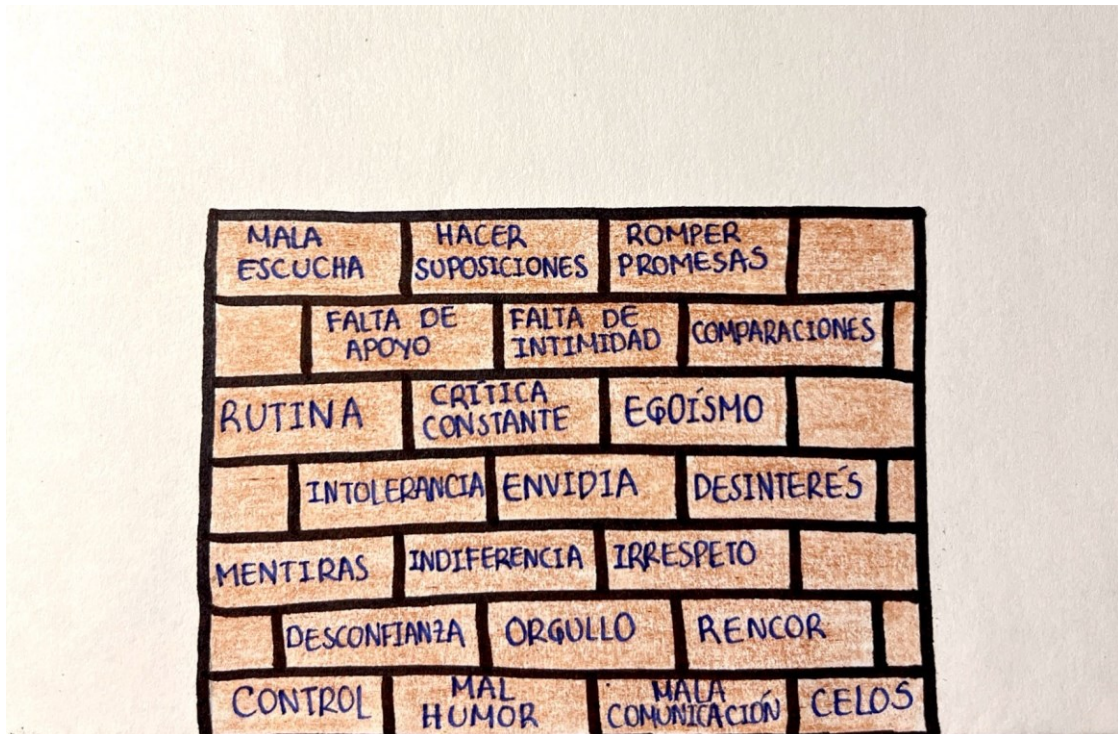 MALA ESCUCHA
HACER SUPOSICIONES
ROMPER PROMESAS
FALTA DE APOYO
FALTA DE INTIMIDAD
COMPARACIONES
RUTINA
CRÍTICA CONSTANTE
EGOÍSMO
INTOLERANCIA
ENVIDIA
DESINTERÉS
MENTIRAS
INDIFERENCIA
IRRESPETO
DESCONFIANZA
ORGULLO
RENCOR
CONTROL
MAL HUMOR
MALA COMUNICACIÓN
CELOS